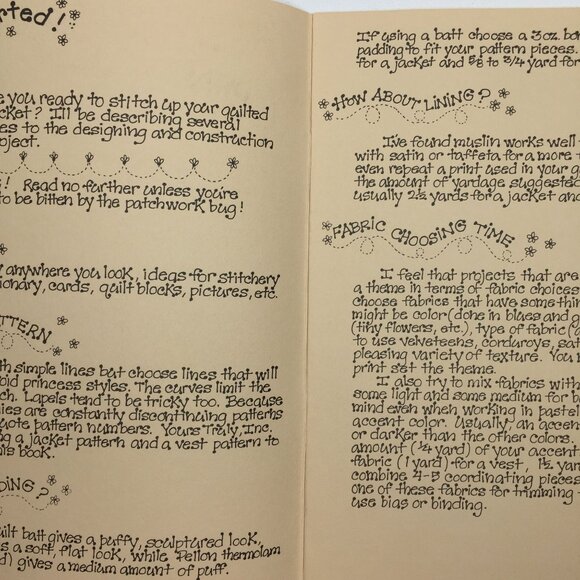 rted!
e you ready to stitch up your quilted
cket? I'll be describing several
es to the designing and construction
roject.
! Read no further unless you're
to be bitten by the patchwork bug!
y anywhere you look, ideas for stitchery
tionary, cards, quilt blocks, pictures, etc.
TTERN
th simple lines but choose lines that will
oid princess styles. The curves limit the
ch. Lapels tend to be tricky too. Because
nies are constantly discontinuing patterns
quote pattern numbers. Yours Truly, Inc.
ng a jacket pattern and a vest pattern to
his book.
DING?
uilt batt gives a puffy, sculptured look,
s a soft, flat look, while Pellon thermolam
d) gives a medium amount of puff.
If using a batt choose a 3 oz. bon
padding to fit your pattern pieces.
for a jacket and 5/8 to 3/4 yard for
HOW ABOUT LINING?
I've found muslin works well
with satin or taffeta for a more
even repeat a print used in your g
the amount of yardage suggested
usually 2½ yards for a jacket and
FABRIC CHOOSING TIME
I feel that projects that are
a theme in terms of fabric choices
choose fabrics that have somethin
might be color (done in blues and g
(tiny flowers, etc.), type of fabric (
to use velveteens, corduroys, sat
pleasing variety of texture. You
print set the theme.
I also try to mix fabrics with
some light and some medium for ba
mind even when working in pastel
accent color. Usually, an accent
or darker than the other colors.
amount (¼ yard) of your accent
fabric (1 yard) for a vest, 1½ yar
combine 4-5 coordinating pieces
one of these fabrics for trimming
use bias or binding.